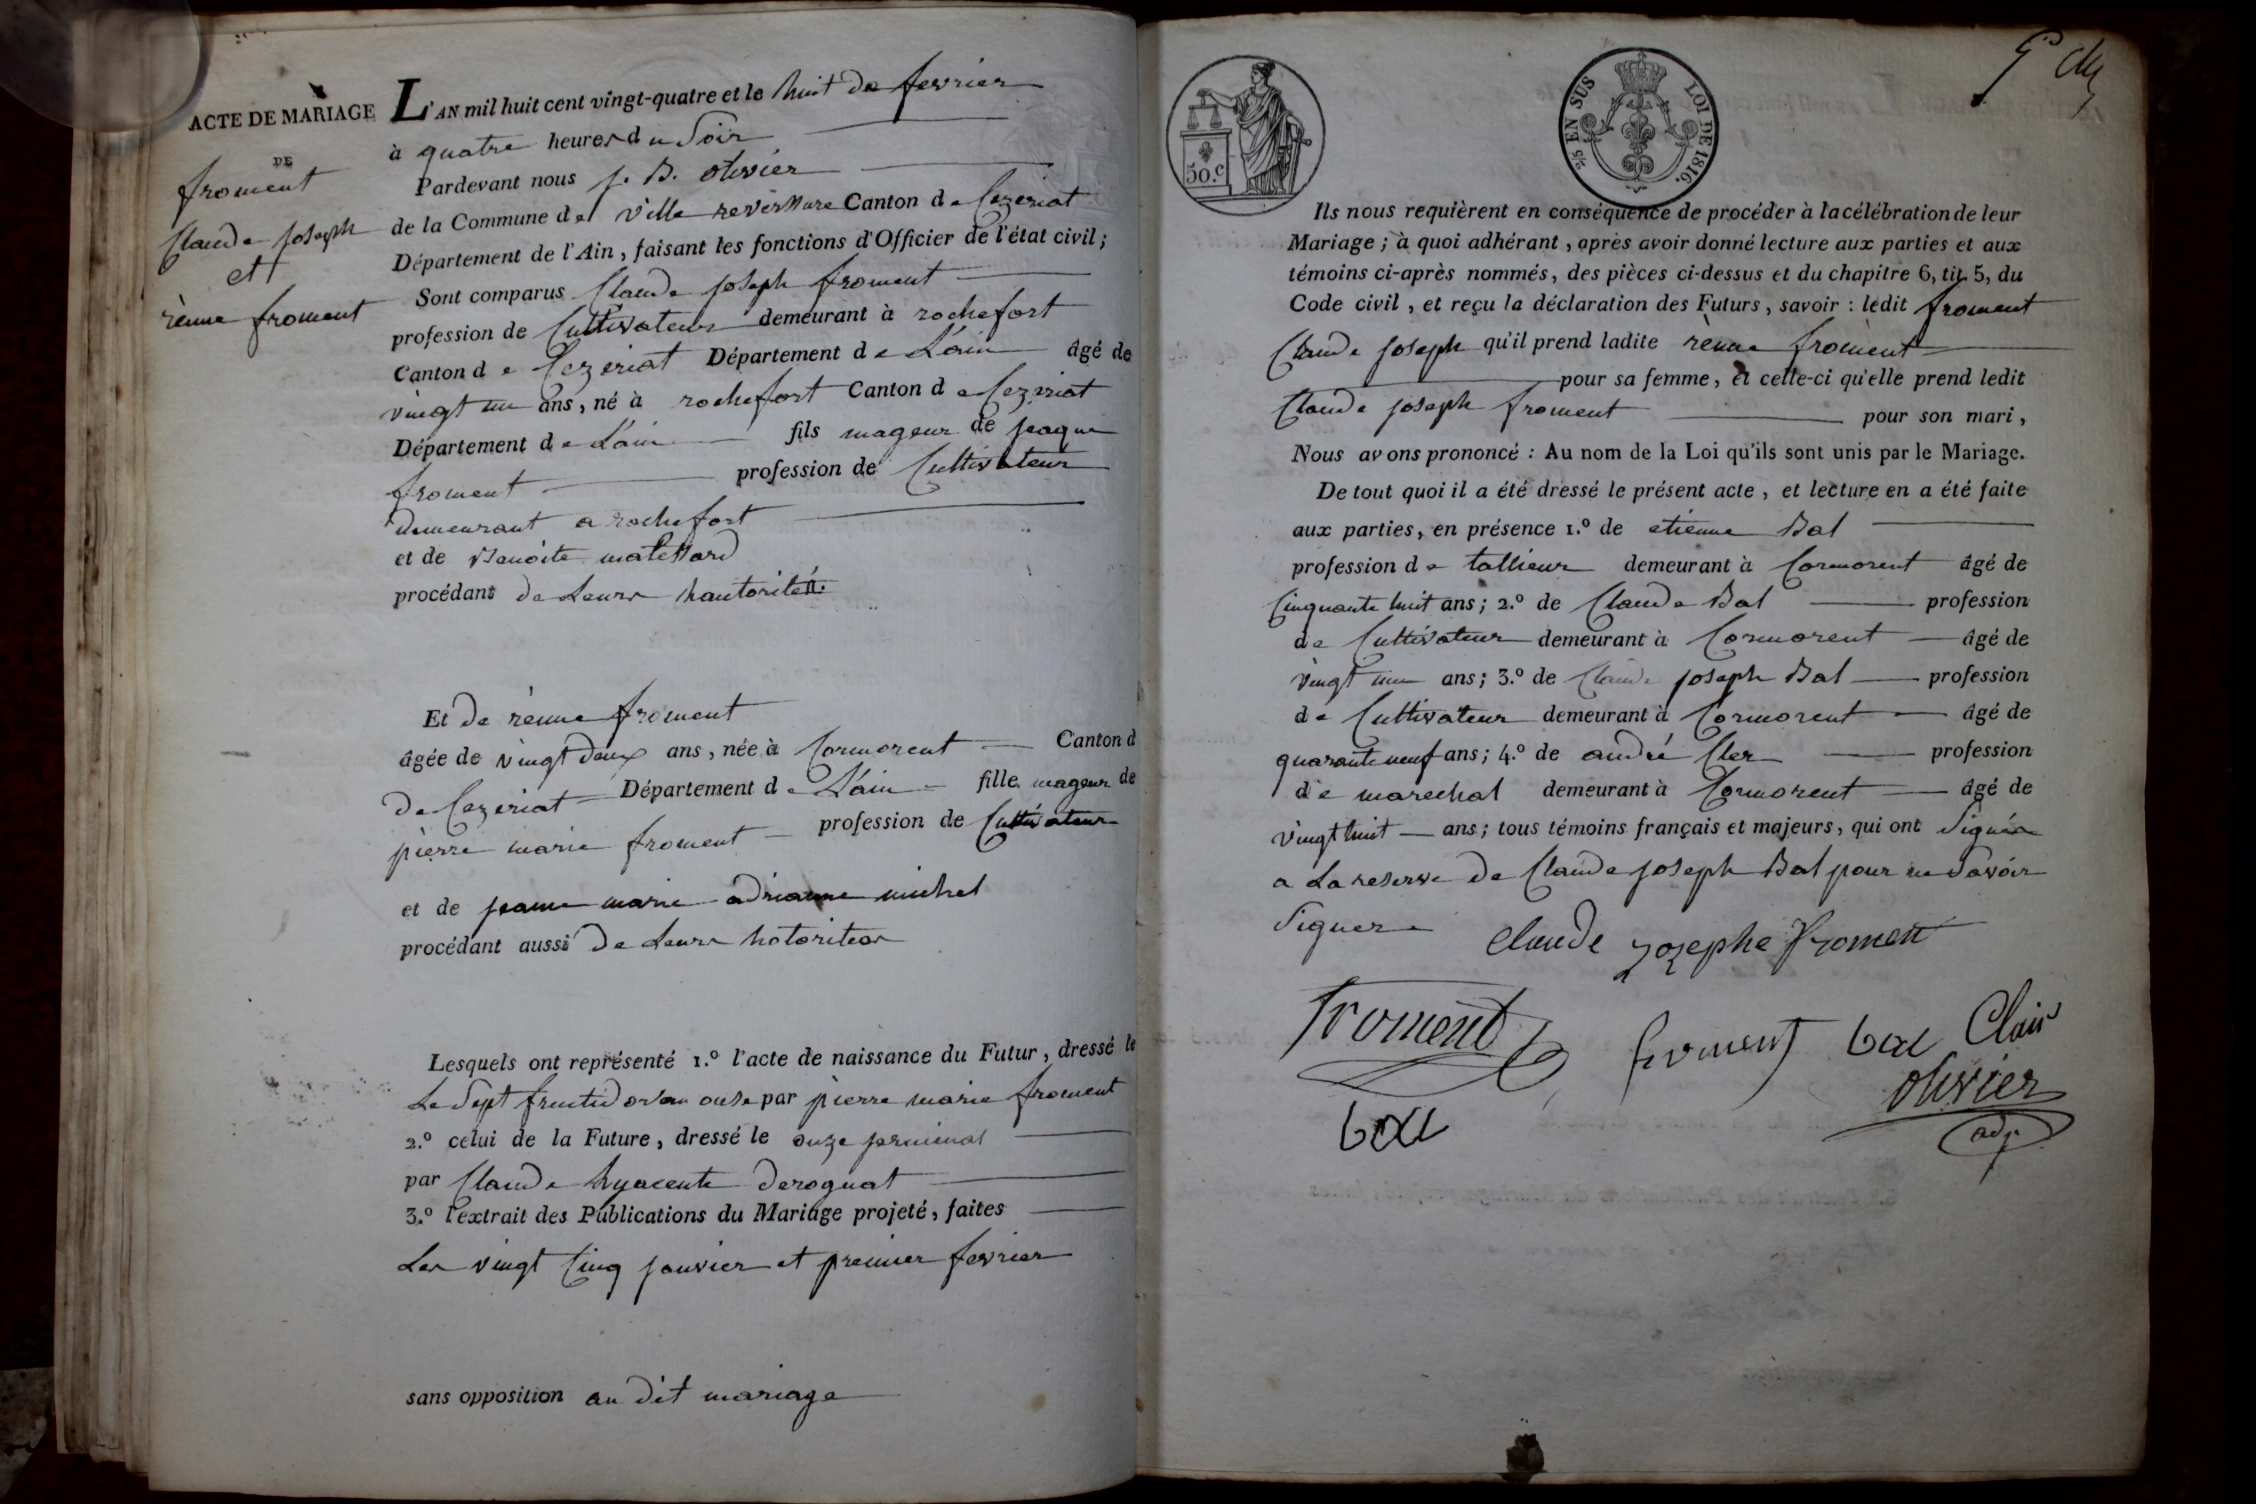 ACTE DE MARIAGE
DE
froment
Claude joseph
et
rènne froment
L'AN mil huit cent vingt-quatre et le huit de fevrier
à quatre heures du Soir
Pardevant nous j. B. olivier
de la Commune de ville reverssure Canton de Cezeriat
Département de l'Ain, faisant les fonctions d'Officier de l'état civil;
Sont comparus Claude joseph froment
profession de Cultivateur demeurant à rochefort
Canton de Cezeriat Département de L'ain âgé de
vingt un ans, né à rochefort Canton de Cezeriat
Département de L'ain fils mageur de jaque
froment profession de Cultivateur
demeurant a rochefort
et de Benoite matessard
procédant de Leurs hautorités.
Et de rènne froment
âgée de vingt deux ans, née à Cormorent Canton d
de Cezeriat Département de L'ain fille mageur de
pierre marie froment profession de Cultivateur
et de jeanne marie adrianne michel
procédant aussi de Leurs hotorites
Lesquels ont représenté 1.º l'acte de naissance du Futur, dressé le
Le Sept fructidor an onse par pierre marie froment
2.º celui de la Future, dressé le onze jerminal
par Claude hyacente deroguat
3.º l'extrait des Publications du Mariage projeté, faites
Les vingt Cinq janvier et premier fevrier
sans opposition au dit mariage
50.c
2/5 EN SUS LOI DE 1816.
Ils nous requièrent en conséquence de procéder à la célébration de leur
Mariage; à quoi adhérant, après avoir donné lecture aux parties et aux
témoins ci-après nommés, des pièces ci-dessus et du chapitre 6, tit. 5, du
Code civil, et reçu la déclaration des Futurs, savoir: ledit froment
Claude joseph qu'il prend ladite rènne froment
pour sa femme, et celle-ci qu'elle prend ledit
Claude joseph froment pour son mari,
Nous avons prononcé: Au nom de la Loi qu'ils sont unis par le Mariage.
De tout quoi il a été dressé le présent acte, et lecture en a été faite
aux parties, en présence 1.º de etienne Bal
profession de tallieur demeurant à Cormorent âgé de
Cinquante huit ans; 2.º de Claude Bal profession
de Cultivateur demeurant à Cormorent âgé de
vingt un ans; 3.º de Claude joseph Bal profession
de Cultivateur demeurant à Cormorent âgé de
quarante neuf ans; 4.º de andré Cler profession
de marechal demeurant à Cormorent âgé de
vingt huit ans; tous témoins français et majeurs, qui ont Signés
a La reserve de Claude joseph Bal pour ne Savoir
Signer
Claude Jozephe Froment
Froment froment bal Clair
bal olivier
adj.